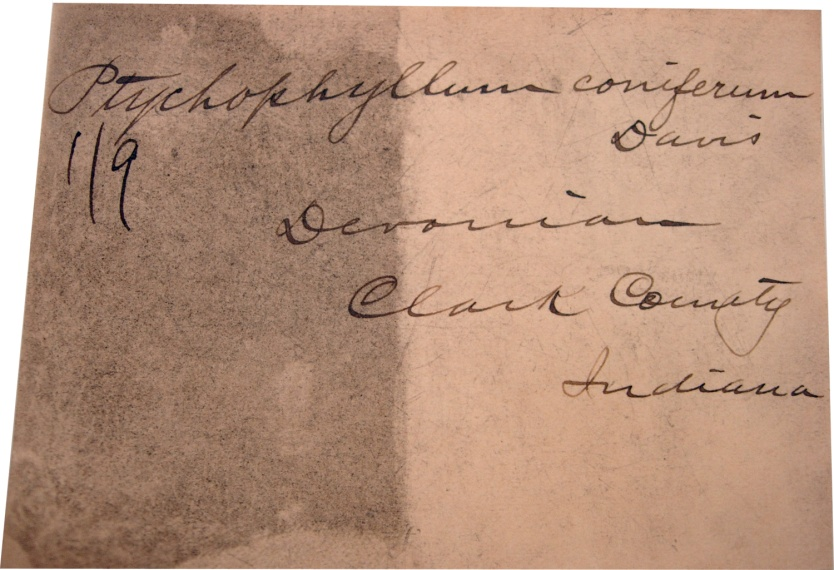 Ptychophyllum coniferum
Davis
119
Devonian
Clark County
Indiana